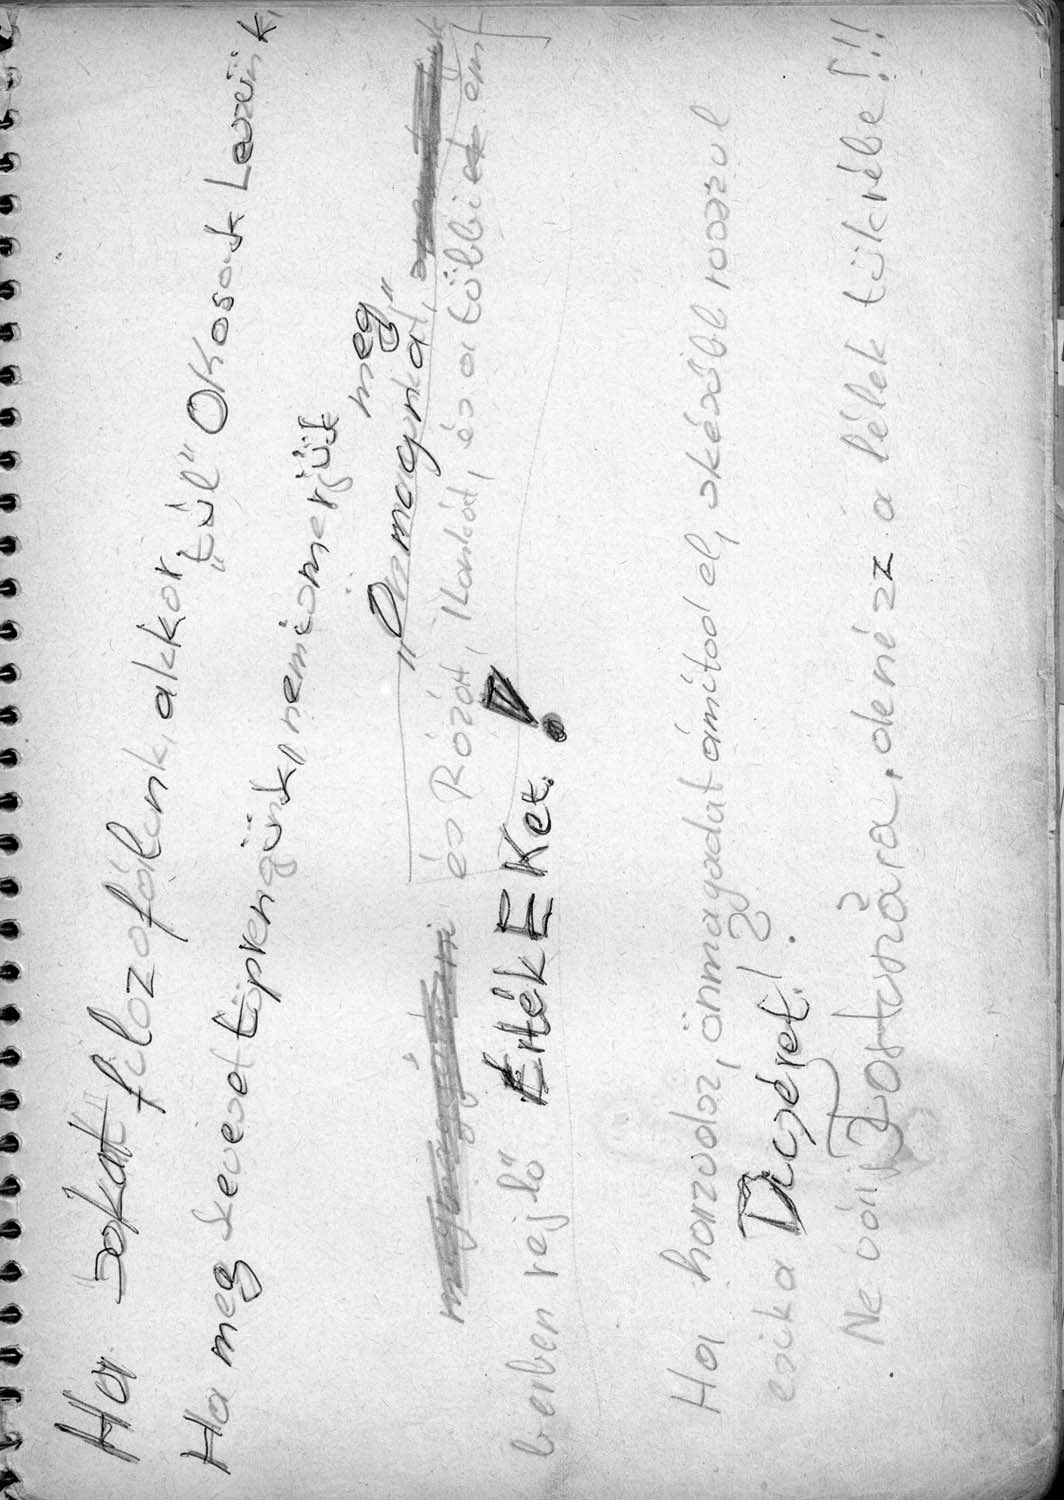 Ha sokat filozofálunk, akkor „túl” okosak leszünk,
Ha meg keveset töprengünk, nem ismerjük
meg
„Önmagunkat,”
és Rózát, Ilonkát, és a többi em
berben rejlő ÉrtékEKet.!
Ha hazudsz, önmagadat ámítod el, s később rosszul
esik a Dicséret.!?.
Ne várj Jostorsára, de nézz a lélek tükrébe!!!